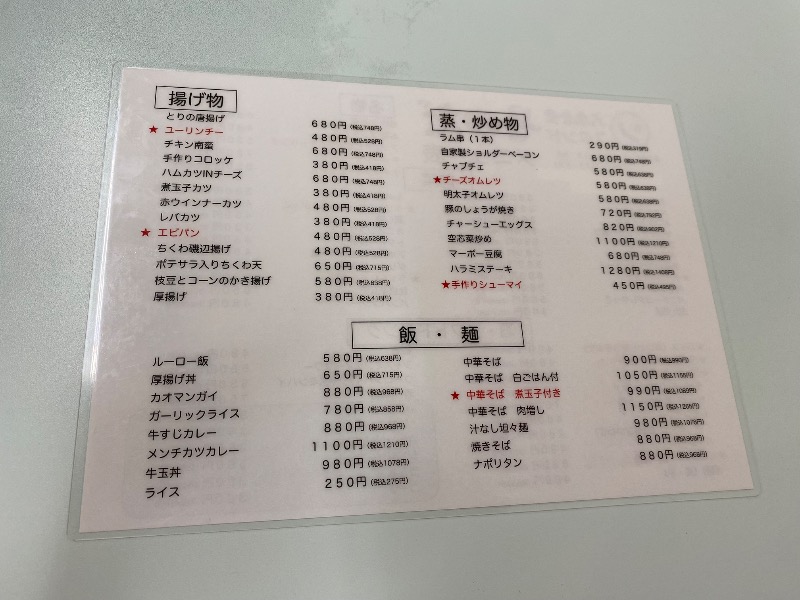 揚げ物
とりの唐揚げ 680円(税込748円)
★ ユーリンチー 480円(税込528円)
チキン南蛮 680円(税込748円)
手作りコロッケ 380円(税込418円)
ハムカツINチーズ 680円(税込748円)
煮玉子カツ 380円(税込418円)
赤ウインナーカツ 480円(税込528円)
レバカツ 380円(税込418円)
★ エビパン 480円(税込528円)
ちくわ磯辺揚げ 480円(税込528円)
ポテサラ入りちくわ天 650円(税込715円)
枝豆とコーンのかき揚げ 580円
厚揚げ 380円(税込418円)
蒸・炒め物
ラム串（1本） 290円(税込319円)
自家製ショルダーベーコン 680円(税込748円)
チャプチェ 580円(税込638円)
★チーズオムレツ 580円(税込638円)
明太子オムレツ 580円(税込638円)
豚のしょうが焼き 720円(税込792円)
チャーシューエッグス 820円(税込902円)
空芯菜炒め 1100円(税込1210円)
マーボー豆腐 680円(税込748円)
ハラミステーキ 1280円(税込1408円)
★手作りシューマイ 450円(税込495円)
飯 ・ 麺
ルーロー飯 580円(税込638円)
厚揚げ丼 650円(税込715円)
カオマンガイ 880円(税込968円)
ガーリックライス 780円(税込858円)
牛すじカレー 880円(税込968円)
メンチカツカレー 1100円(税込1210円)
牛玉丼 980円(税込1078円)
ライス 250円(税込275円)
中華そば 900円(税込990円)
中華そば 白ごはん付 1050円(税込1155円)
★ 中華そば 煮玉子付き 990円(税込1089円)
中華そば 肉増し 1150円(税込1265円)
汁なし坦々麺 980円(税込1078円)
焼きそば 880円(税込968円)
ナポリタン 880円(税込968円)